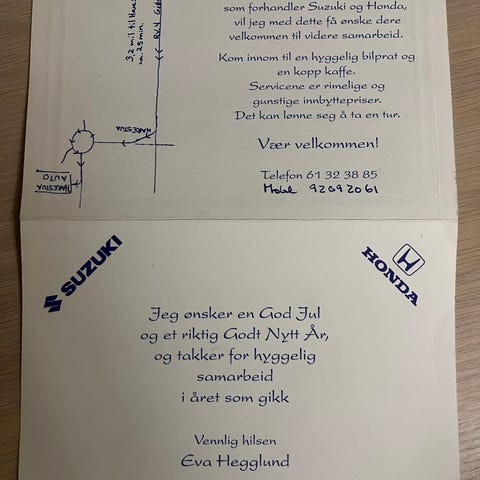 3,2 mil til
ca. 25 min.
RV.4
HARESTUA
HARESTUA
AUTO
som forhandler Suzuki og Honda,
vil jeg med dette få ønske dere
velkommen til videre samarbeid.
Kom innom til en hyggelig bilprat og
en kopp kaffe.
Servicene er rimelige og
gunstige innbyttepriser.
Det kan lønne seg å ta en tur.
Vær velkommen!
Telefon 61 32 38 85
Mobil 92092061
SUZUKI
HONDA
Jeg ønsker en God Jul
og et riktig Godt Nytt År,
og takker for hyggelig
samarbeid
i året som gikk
Vennlig hilsen
Eva Hegglund